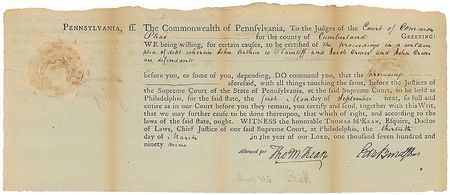 PENNSYLVANIA, ss. The Commonwealth of Pennsylvania, To the Judges of the Court of Common
Pleas for the county of Cumberland GREETING:
WE being willing, for certain causes, to be certified of the proceedings in a certain
plea of debt wherein John is Plaintiff and Jacob and John
are defendants
before you, or some of you, depending, DO command you, that the proceedings
aforesaid, with all things touching the same, before the Justices of
the Supreme Court of the State of Pennsylvania, at the said Supreme Court, to be held at
Philadelphia, for the said state, the first Monday of September next, so full and
entire as in our Court before you they remain, you certify and send, together with this Writ,
that we may further cause to be done thereupon, that which of right, and according to the
laws of the said state, ought. WITNESS the honorable THOMAS M'KEAN, Esquire, Doctor
of Laws, Chief Justice of our said Supreme Court, at Philadelphia, the thirtieth
day of March in the year of our LORD, one thousand seven hundred and
ninety nine
Allowed per Tho M:Kean Edw Burd